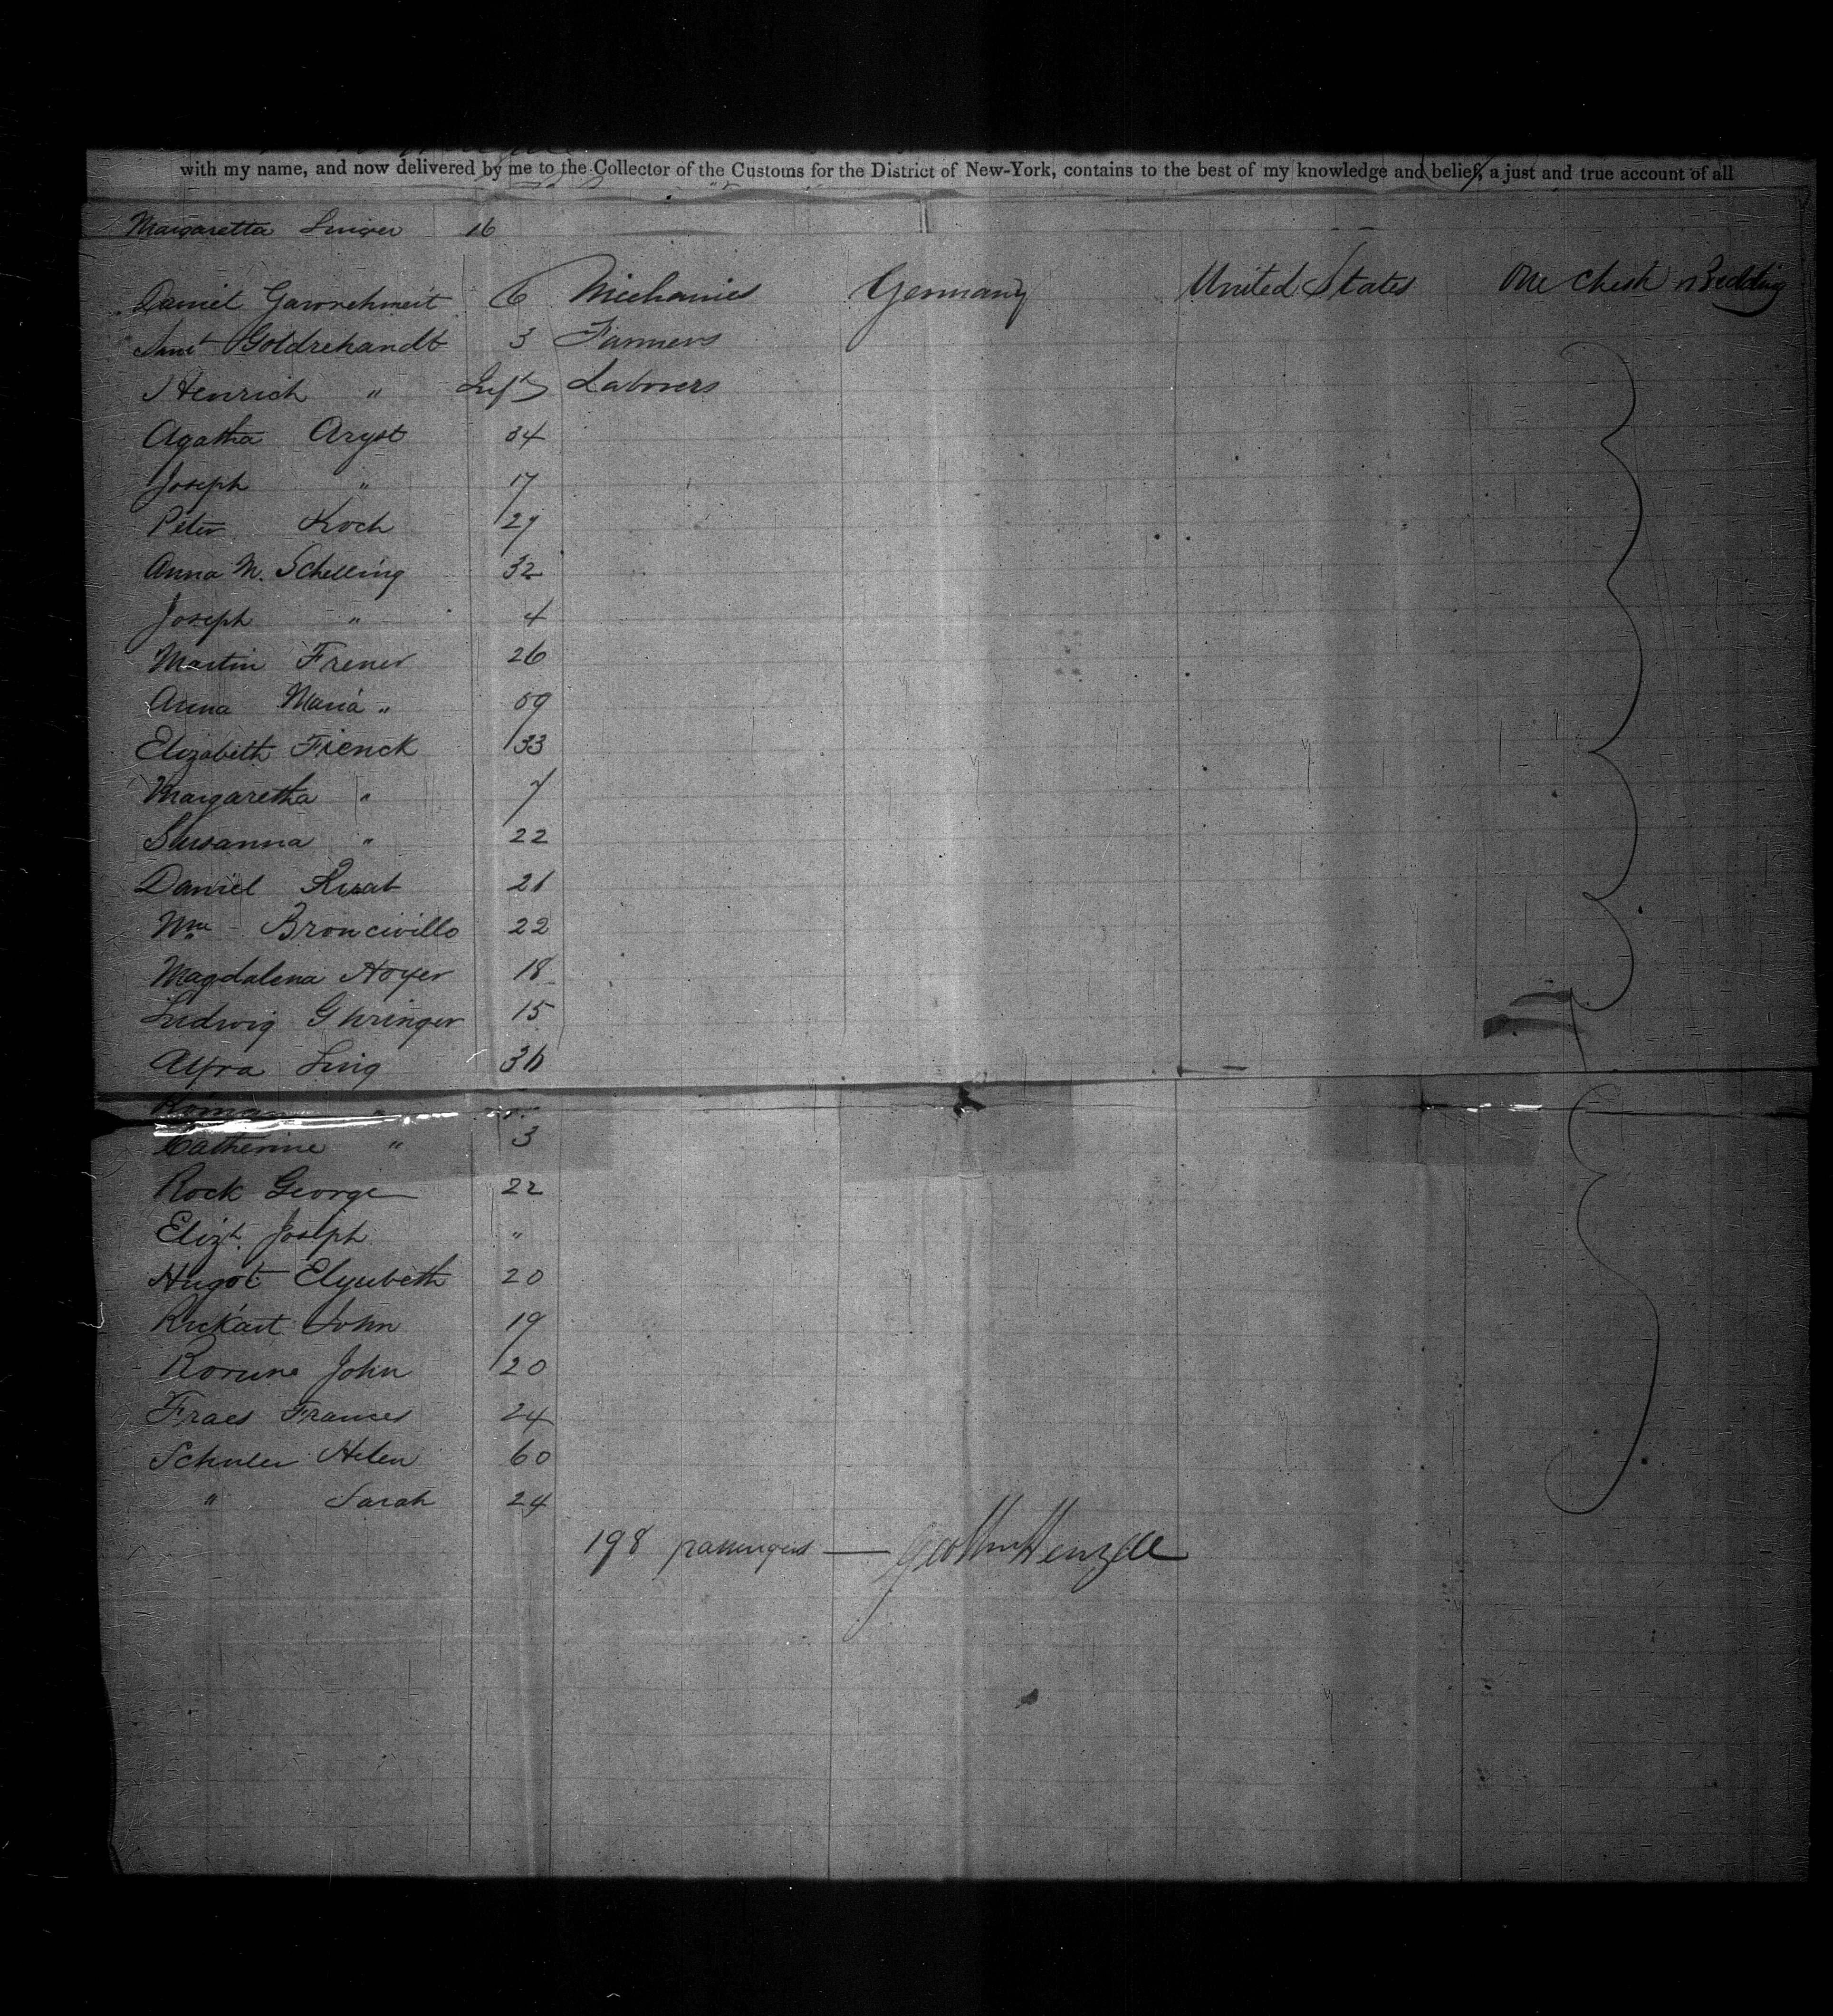 with my name, and now delivered by me to the Collector of the Customs for the District of New-York, contains to the best of my knowledge and belief, a just and true account of all
Margaretta Singer 16
Daniel 6 Mechanics Germany United States One Chest & Bedding
Goldrehandt 3 Farmers
Henrich " Inft Laborers
Agatha Aryst 34
Joseph " 17
Peter Koch 27
Anna M. Schelling 32
Joseph " 4
Martin Frener 26
Anna Maria " 59
Elizabeth Frenck 33
Margaretha " 7
Susanna " 22
Daniel 21
Broncivillo 22
Magdalena Hoyer 18
Ludwig Ghringer 15
Afra Sing 36
Roman "
Catherine " 3
Rock George 22
Elizt. Joseph "
Hugot Elyzubeth 20
Rickart John 19
John 20
Fraes Frances 24
Schuler Helen 60
" Sarah 24
198 passengers — Geo Wm Henzell